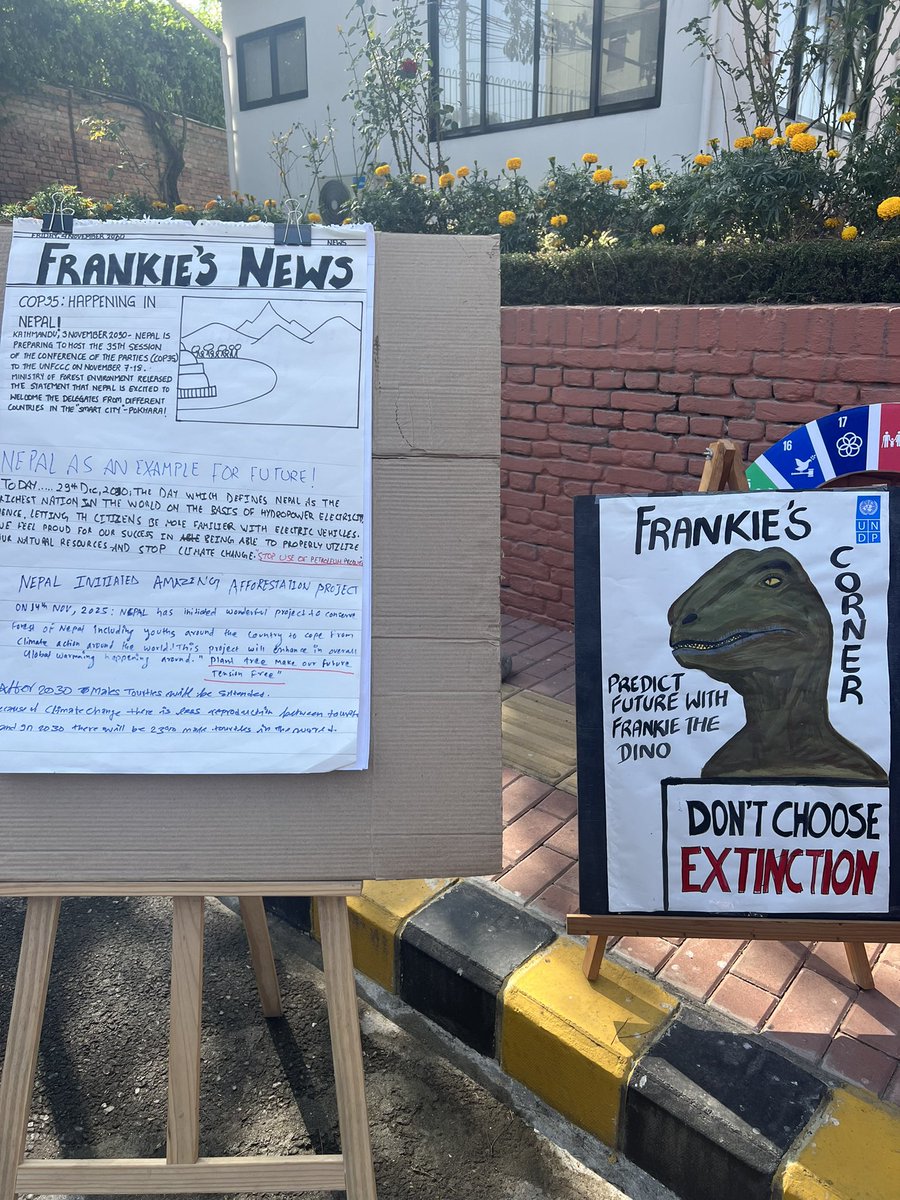 FRIDAY, 4 NOVEMBER 2030
NEWS
FRANKIE'S NEWS
COP35: HAPPENING IN
NEPAL!
KATHMANDU, 3 NOVEMBER 2030- NEPAL IS
PREPARING TO HOST THE 35TH SESSION
OF THE CONFERENCE OF THE PARTIES (COP35)
TO THE UNFCCC ON NOVEMBER 7-18.
MINISTRY OF FOREST ENVIRONMENT RELEASED
THE STATEMENT THAT NEPAL IS EXCITED TO
WELCOME THE DELEGATES FROM DIFFERENT
COUNTRIES IN THE "SMART CITY"-POKHARA!
NEPAL AS AN EXAMPLE FOR FUTURE!
TODAY..... 29th DEC, 2030; THE DAY WHICH DEFINES NEPAL AS THE
RICHEST NATION IN THE WORLD ON THE BASIS OF HYDROPOWER ELECTRICITY
HENCE, LETTING TH CITIZENS BE MORE FAMILIER WITH ELECTRIC VEHICLES.
WE FEEL PROUD FOR OUR SUCCESS IN BEING ABLE TO PROPERLY UTILIZE
OUR NATURAL RESOURCES AND STOP CLIMATE CHANGE. "STOP USE OF PETROLEUM
NEPAL INITIATED AMAZING AFFORESTATION PROJECT
ON 14th NOV, 2025: NEPAL has initiated wonderful project to conserve
forest of Nepal including youths around the country to cope from
Climate action around the world! This project will enhance in overall
Global warming happening around. " Plant tree make our future
Tension Free"
After 2030 Males Tourtles will be Extended.
because of Climate Change there is less reproduction between tourtle
and In 2030 there will be male tourtles in the
16
17
FRANKIE'S
CORNER
UN
DP
PREDICT
FUTURE WITH
FRANKIE THE
DINO
DON'T CHOOSE
EXTINCTION